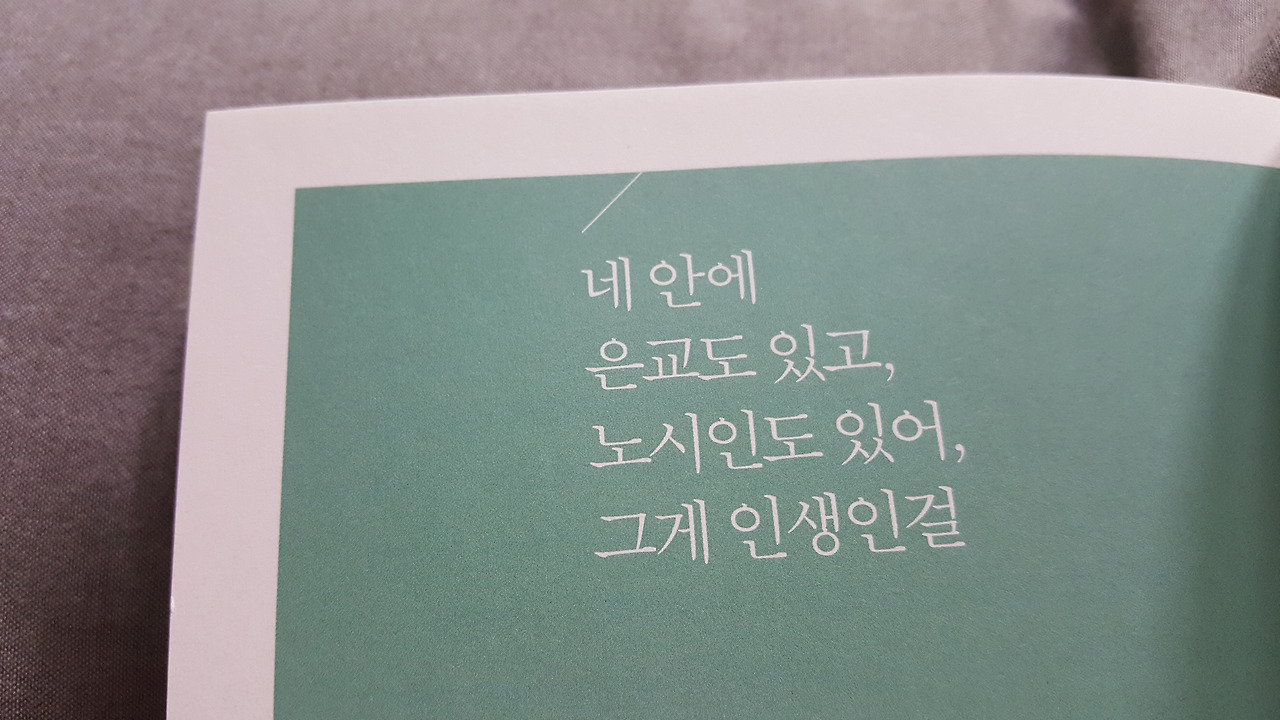 네 안에
은교도 있고,
노시인도 있어,
그게 인생인걸